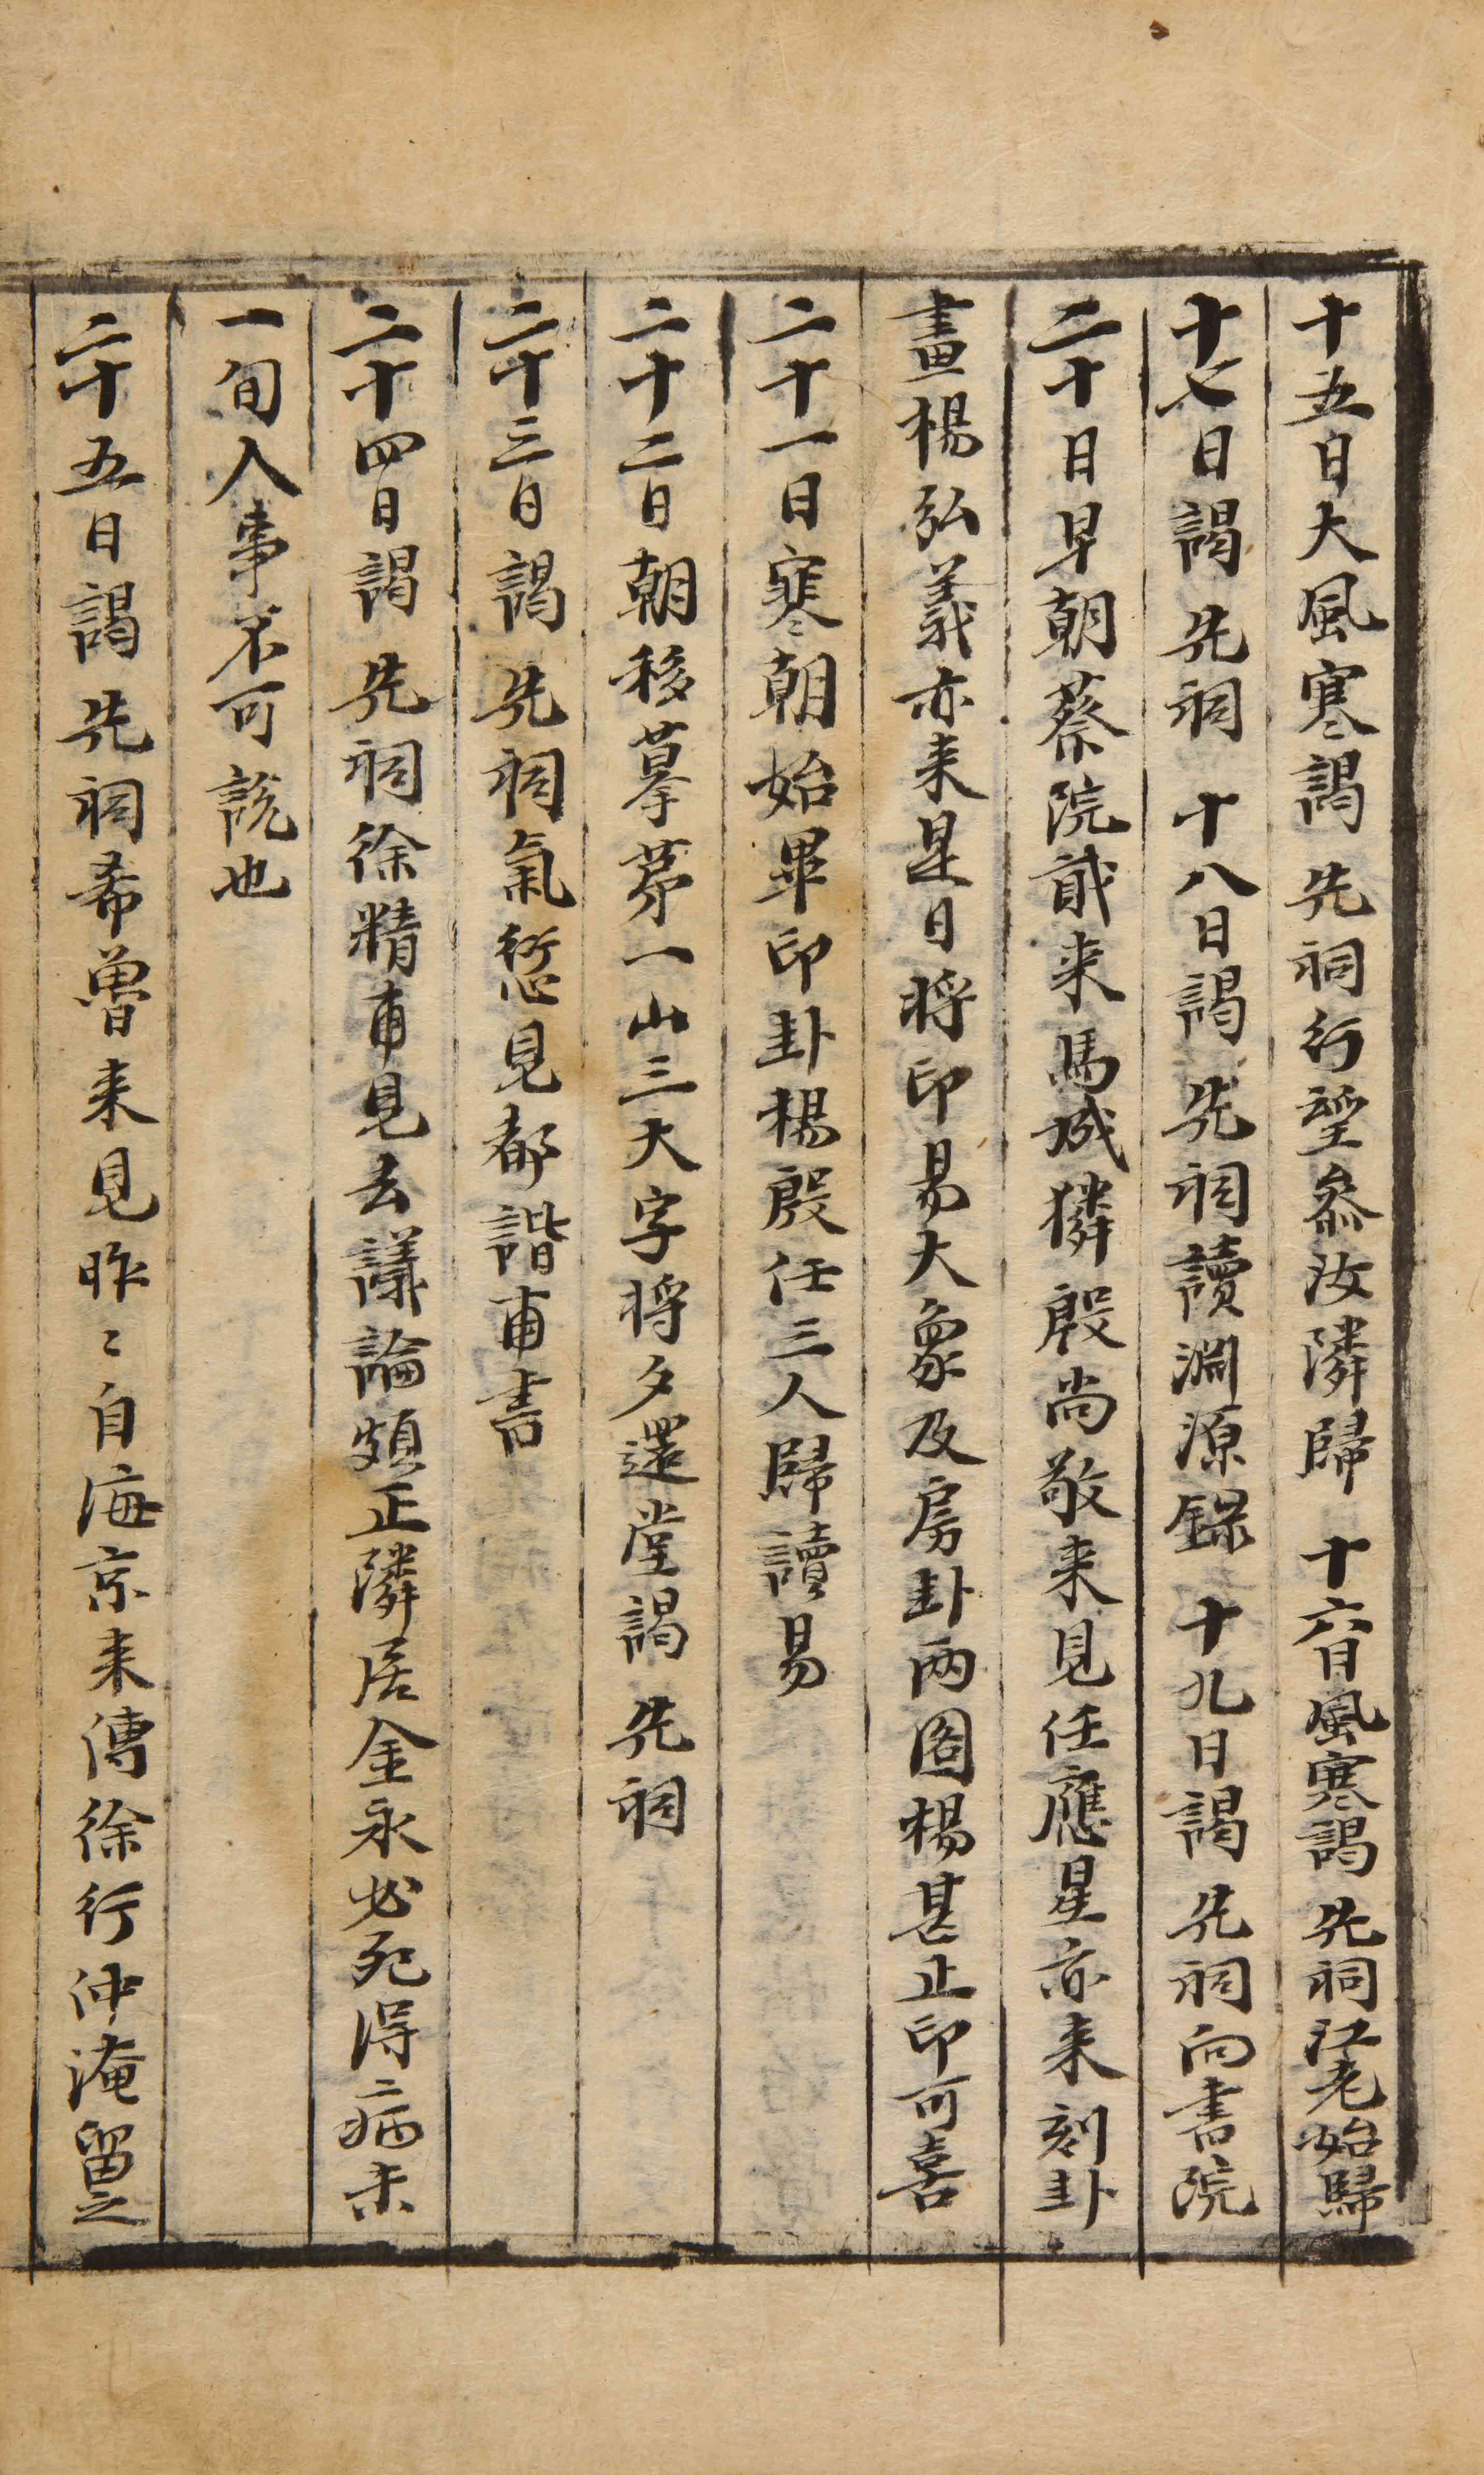 十五日大風寒謁 先祠行望叅汝隣歸 十六日風寒謁 先祠江老始歸
十七日謁 先祠 十八日謁 先祠讀淵源錄 十九日謁 先祠向書院
二十日早朝蔡院貳来馬城獜殷尚敬来見任應星亦来刻卦
畫楊弘義亦来是日將印易大象及房卦兩圖楊甚正印可喜
二十一日寒朝始畢印卦楊殷任三人歸讀易
二十二日朝移摹茅一山三大字將夕還堂謁 先祠
二十三日謁 先祠氣愆見都諧甫書
二十四日謁 先祠徐精甫見去議論頗正隣居金永必死得病未
一旬人事不可說也
二十五日謁 先祠希曾来見昨〻自海京来傳徐行仲淹留之